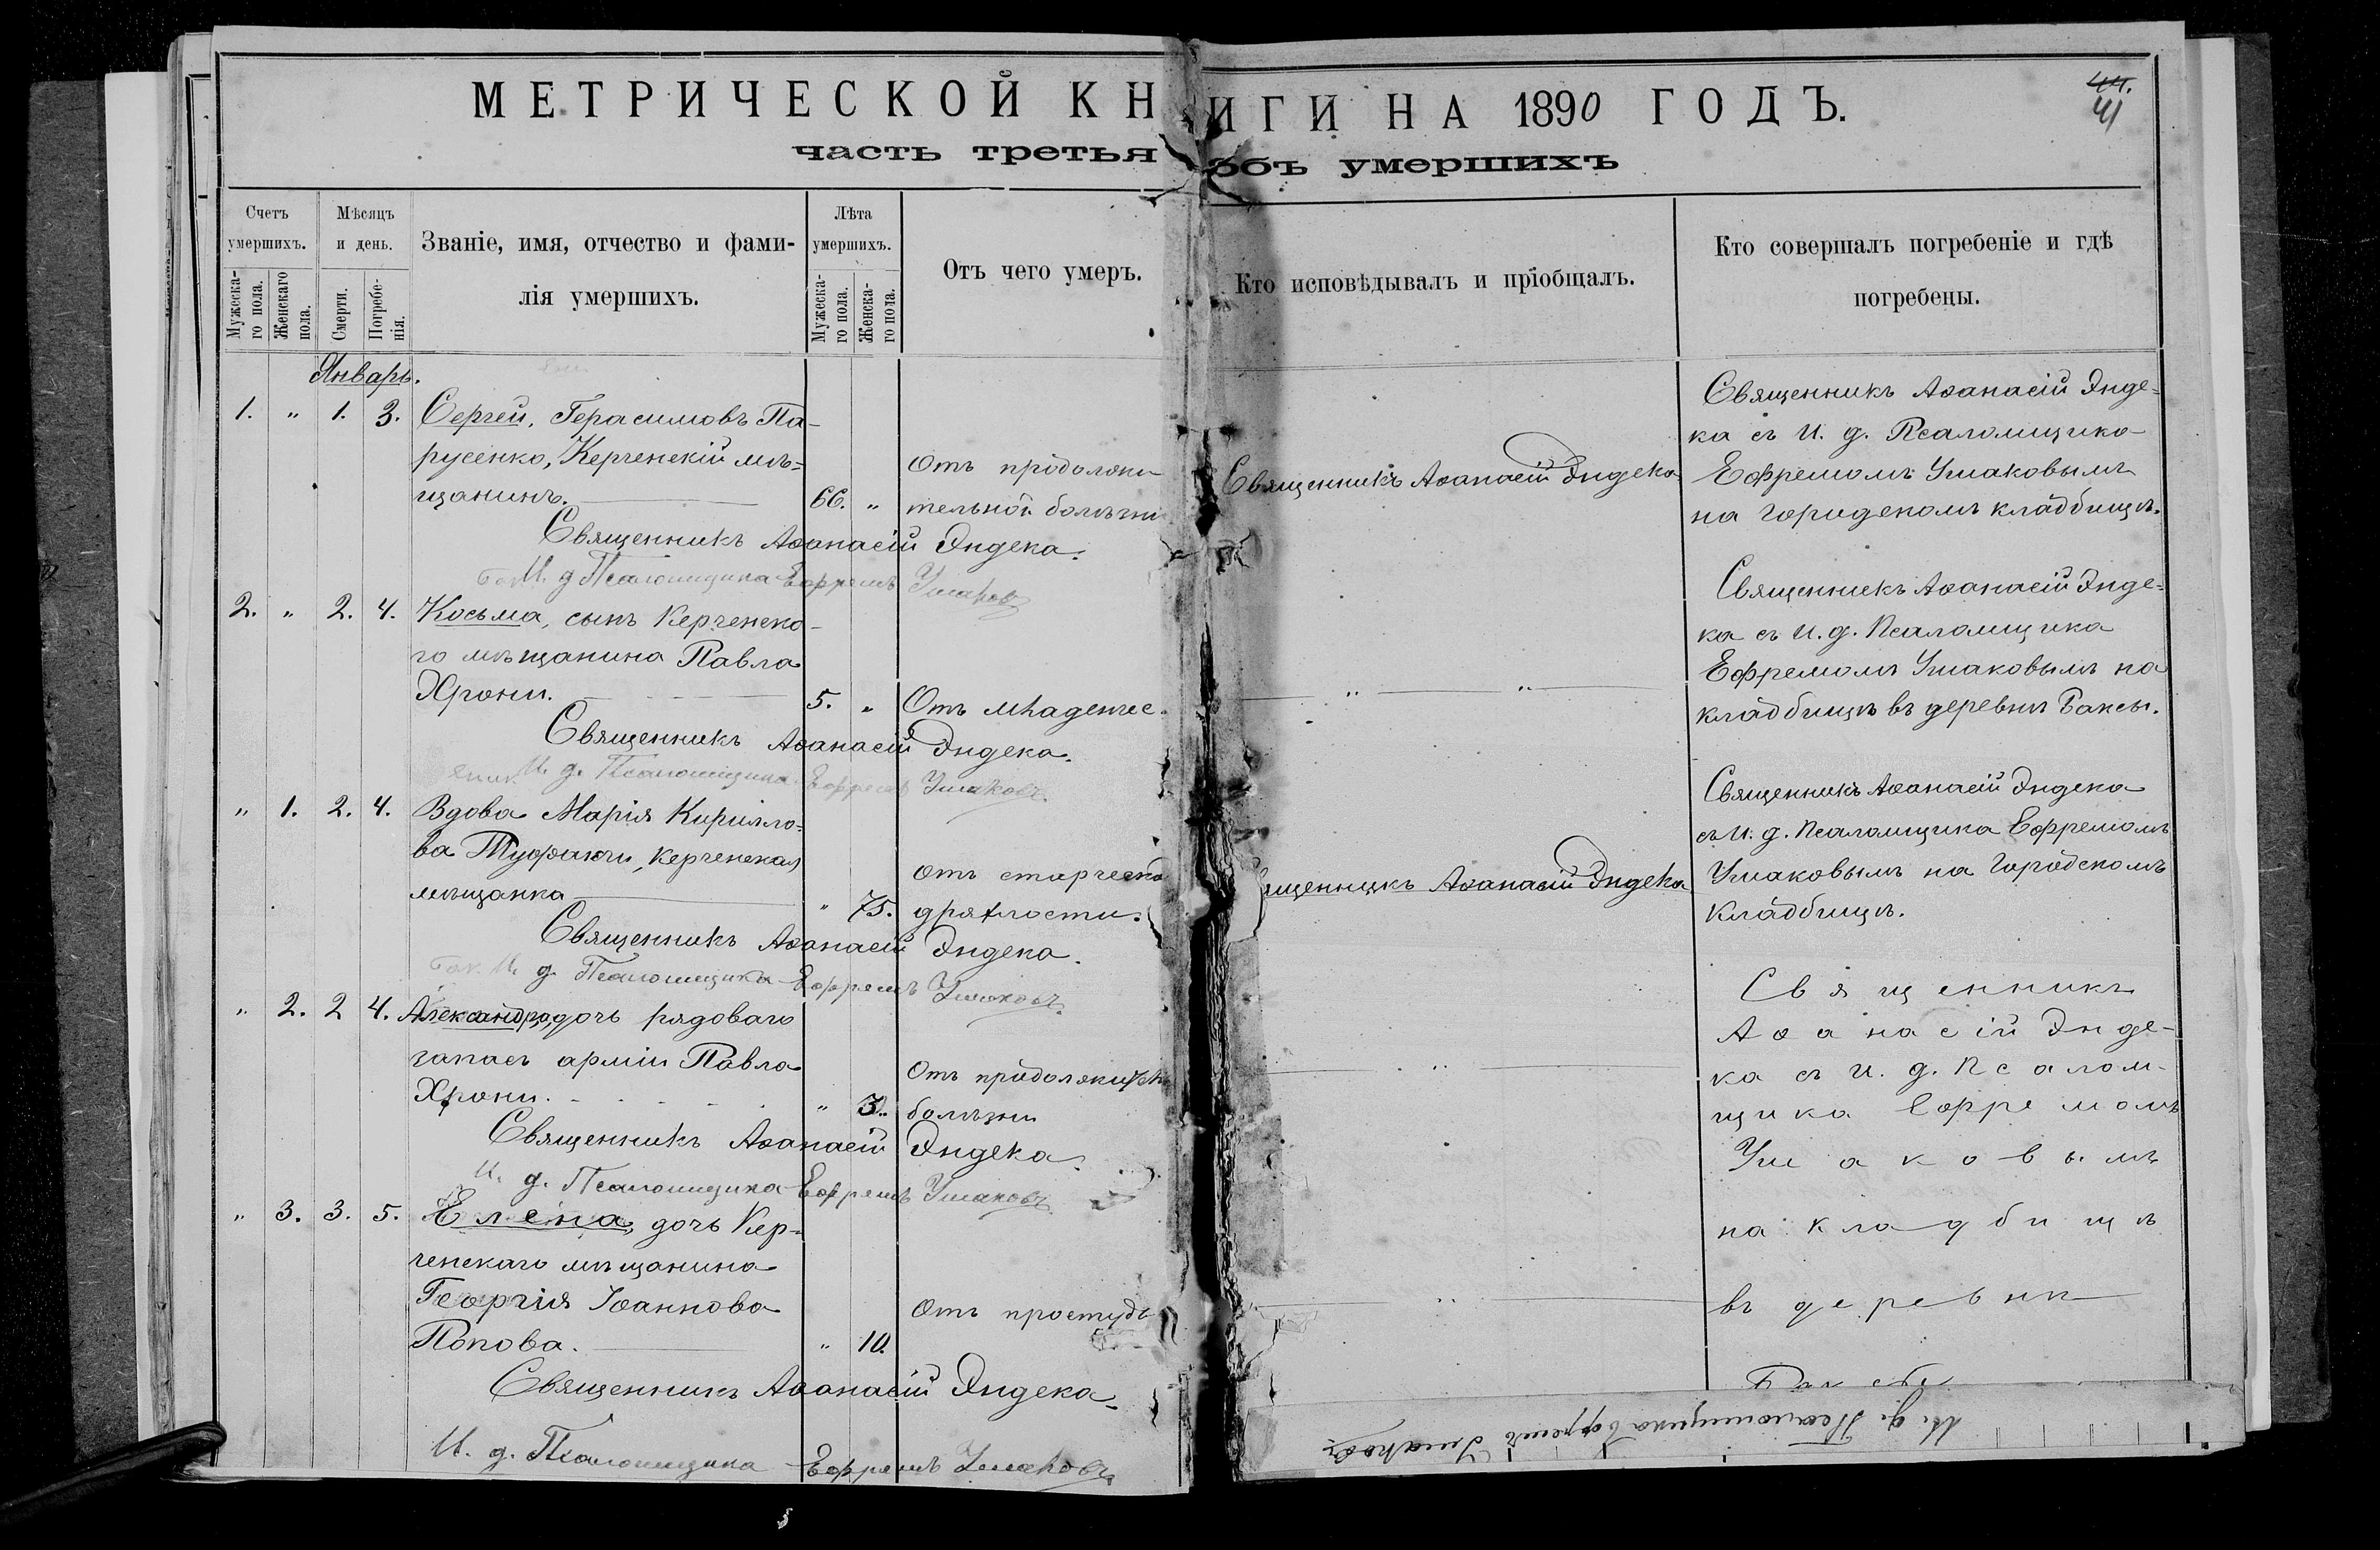 МЕТРИЧЕСКОЙ КНИГИ НА 1890 ГОДЪ.
41
часть третья объ умершихъ
Счетъ умершихъ.
Мужеска-
го пола.
Женскаго
пола.
Мѣсяцъ
и день.
Смерти.
Погребе-
нія.
Званіе, имя, отчество и фами-
лія умершихъ.
Лѣта
умершихъ.
Мужеска-
го пола.
Женска-
го пола.
Отъ чего умеръ.
Кто исповѣдывалъ и пріобщалъ.
Кто совершалъ погребеніе и гдѣ
погребены.
Январь.
1. „ 1. 3. Сергей, Герасимовъ Па-
русенко, Керченскій мѣ-
щанинъ. 66. „
Отъ продолжи
тельной болѣзни
Священникъ Аѳанасій Эндека
Священникъ Аѳанасій Энде-
ка съ И. д. Псаломщика
Ефремомъ Ушаковымъ
на городскомъ кладбищѣ.
Священникъ Аѳанасій Эндека.
И. д. Псаломщика Ефремъ Ушаковъ
2. „ 2. 4. Косьма, сынъ Керченско-
го мѣщанина Павла
Хрони. 5. „ Отъ младенчес.
„ „
Священникъ Аѳанасій Энде-
ка съ И. д. Псаломщика
Ефремомъ Ушаковымъ на
кладбищѣ въ деревнѣ Баксы.
Священникъ Аѳанасій Эндека.
И. д. Псаломщика Ефремъ Ушаковъ.
„ 1. 2. 4. Вдова Марія Кирилло-
ва Туфакчи, Керченская
мѣщанка „ 75.
Отъ старческо
дряхлости.
ященникъ Аѳанасій Эндека
Священникъ Аѳанасій Эндека
съ И. д. Псаломщика Ефремомъ
Ушаковымъ на городскомъ
кладбищѣ.
Священникъ Аѳанасій Эндека.
И. д. Псаломщика Ефремъ Ушаковъ.
„ 2. 2 4. Александра, дочь рядоваго
запаса арміи Павла
Хрони. „ 3.
Отъ продолжит
болѣзни
„
Священникъ
Аѳанасій Энде-
ка съ И. д. Псалом-
щика Ефремомъ
Ушаковымъ
на кладбищѣ
въ деревнѣ
Баксы
Священникъ Аѳанасій Эндека.
И. д. Псаломщика Ефремъ Ушаковъ
„ 3. 3. 5. Елена, дочь Кер-
ченскаго мѣщанина
Георгія Іоаннова
Попова. „ 10.
Отъ простуды
„
Священникъ Аѳанасій Эндека.
И. д. Псаломщика Ефремъ Ушаковъ
И. д. Псаломщика Ефремъ Ушаковъ